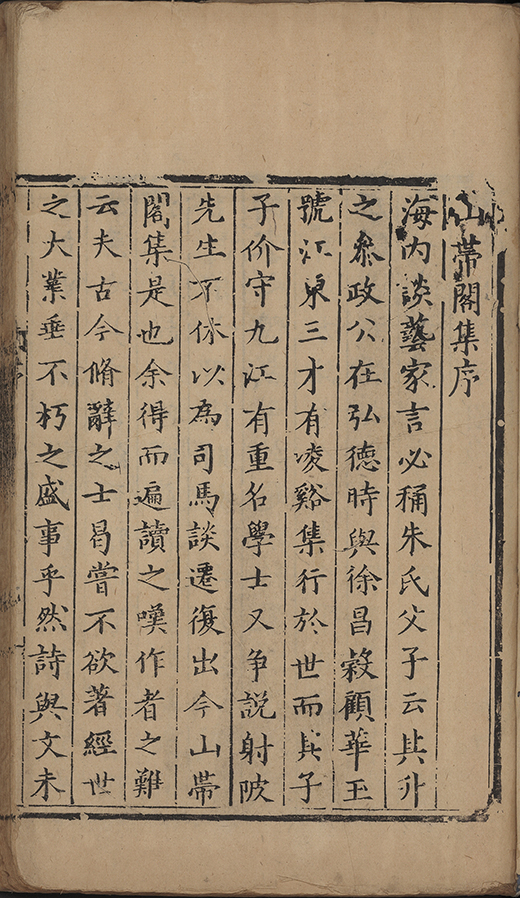 山帶閣集序
海内談藝家言必稱朱氏父子云其升
之叅政公在弘德時與徐昌糓顧華玉
號江東三才有凌谿集行於世而其子
子价守九江有重名學士又争説射陂
先生不休以為司馬談遷復出今山帶
閣集是也余得而遍讀之嘆作者之難
云夫古今脩辭之士曷嘗不欲著經世
之大業垂不朽之盛事乎然詩與文未